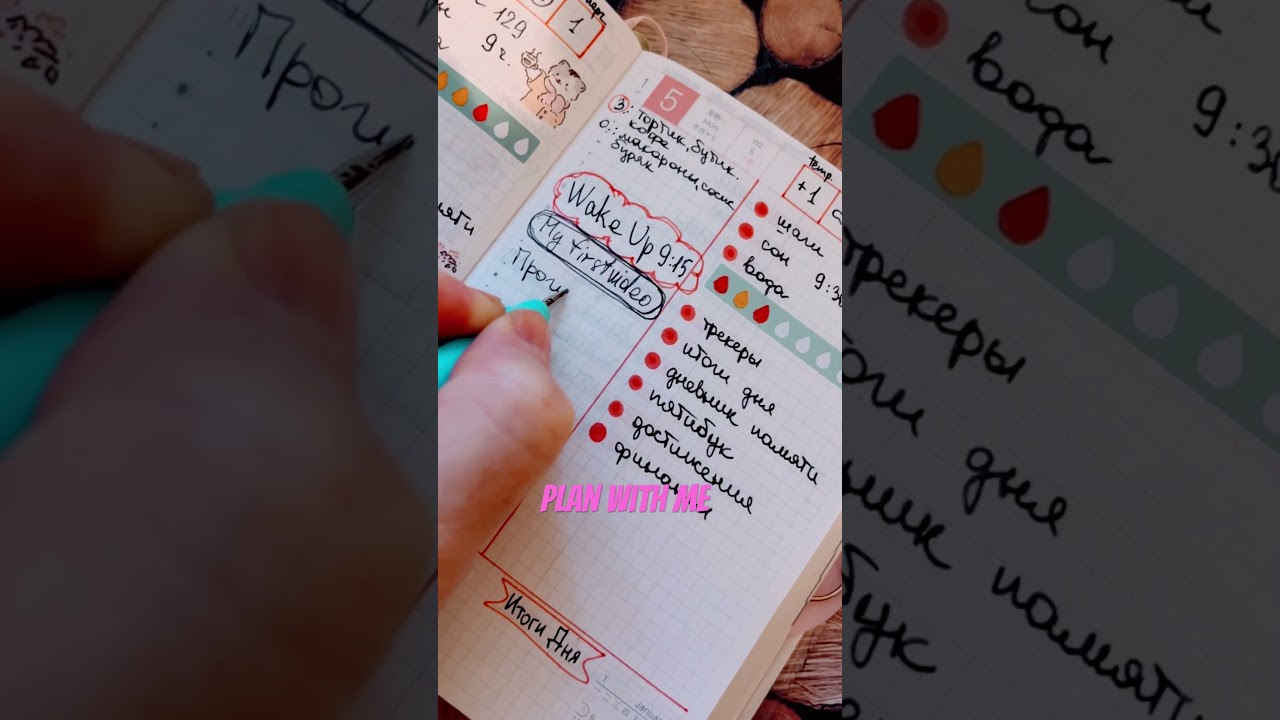 129
1
9 г.
1
5
MON
З: тортик, бутик.
кофе
О: макароны, сосис
буряк
Wake Up 9:15
My first video
Проги
temp.
+1
сон
вода
9:3
трекеры
итоги дня
дневник памяти
пятибук
достижения
PLAN WITH ME
Итоги Дня